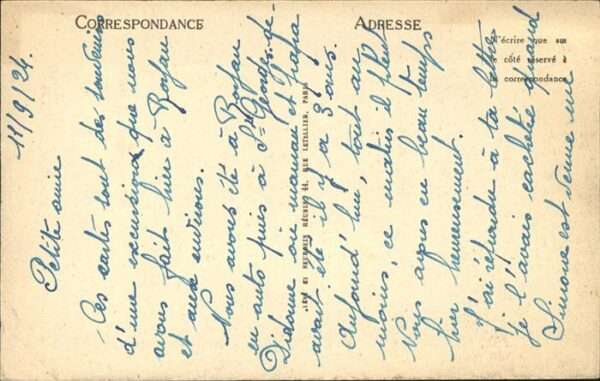 CORRESPONDANCE
ADRESSE
N'écrire que sur
le côté réservé à
la correspondance
LEVY ET NEURDEIN RÉUNIS 44, RUE LETELLIER, PARIS
11/9/24.
Petite amie
Ces cartes sont des souvenirs
d'une excursion que nous
avons fait hier à Royan
et aux environs.
Nous avons été à Royan
en auto puis à St Georges-de-
Didonne où maman et papa
avait été il y a 3 ans.
Aujourd'hui, tout au
moins, ce matin il pleut
Nous avons eu beau temps
hier heureusement.
J'ai répondu à ta lettre
je l'avais cacheté quand
Simone est venue me